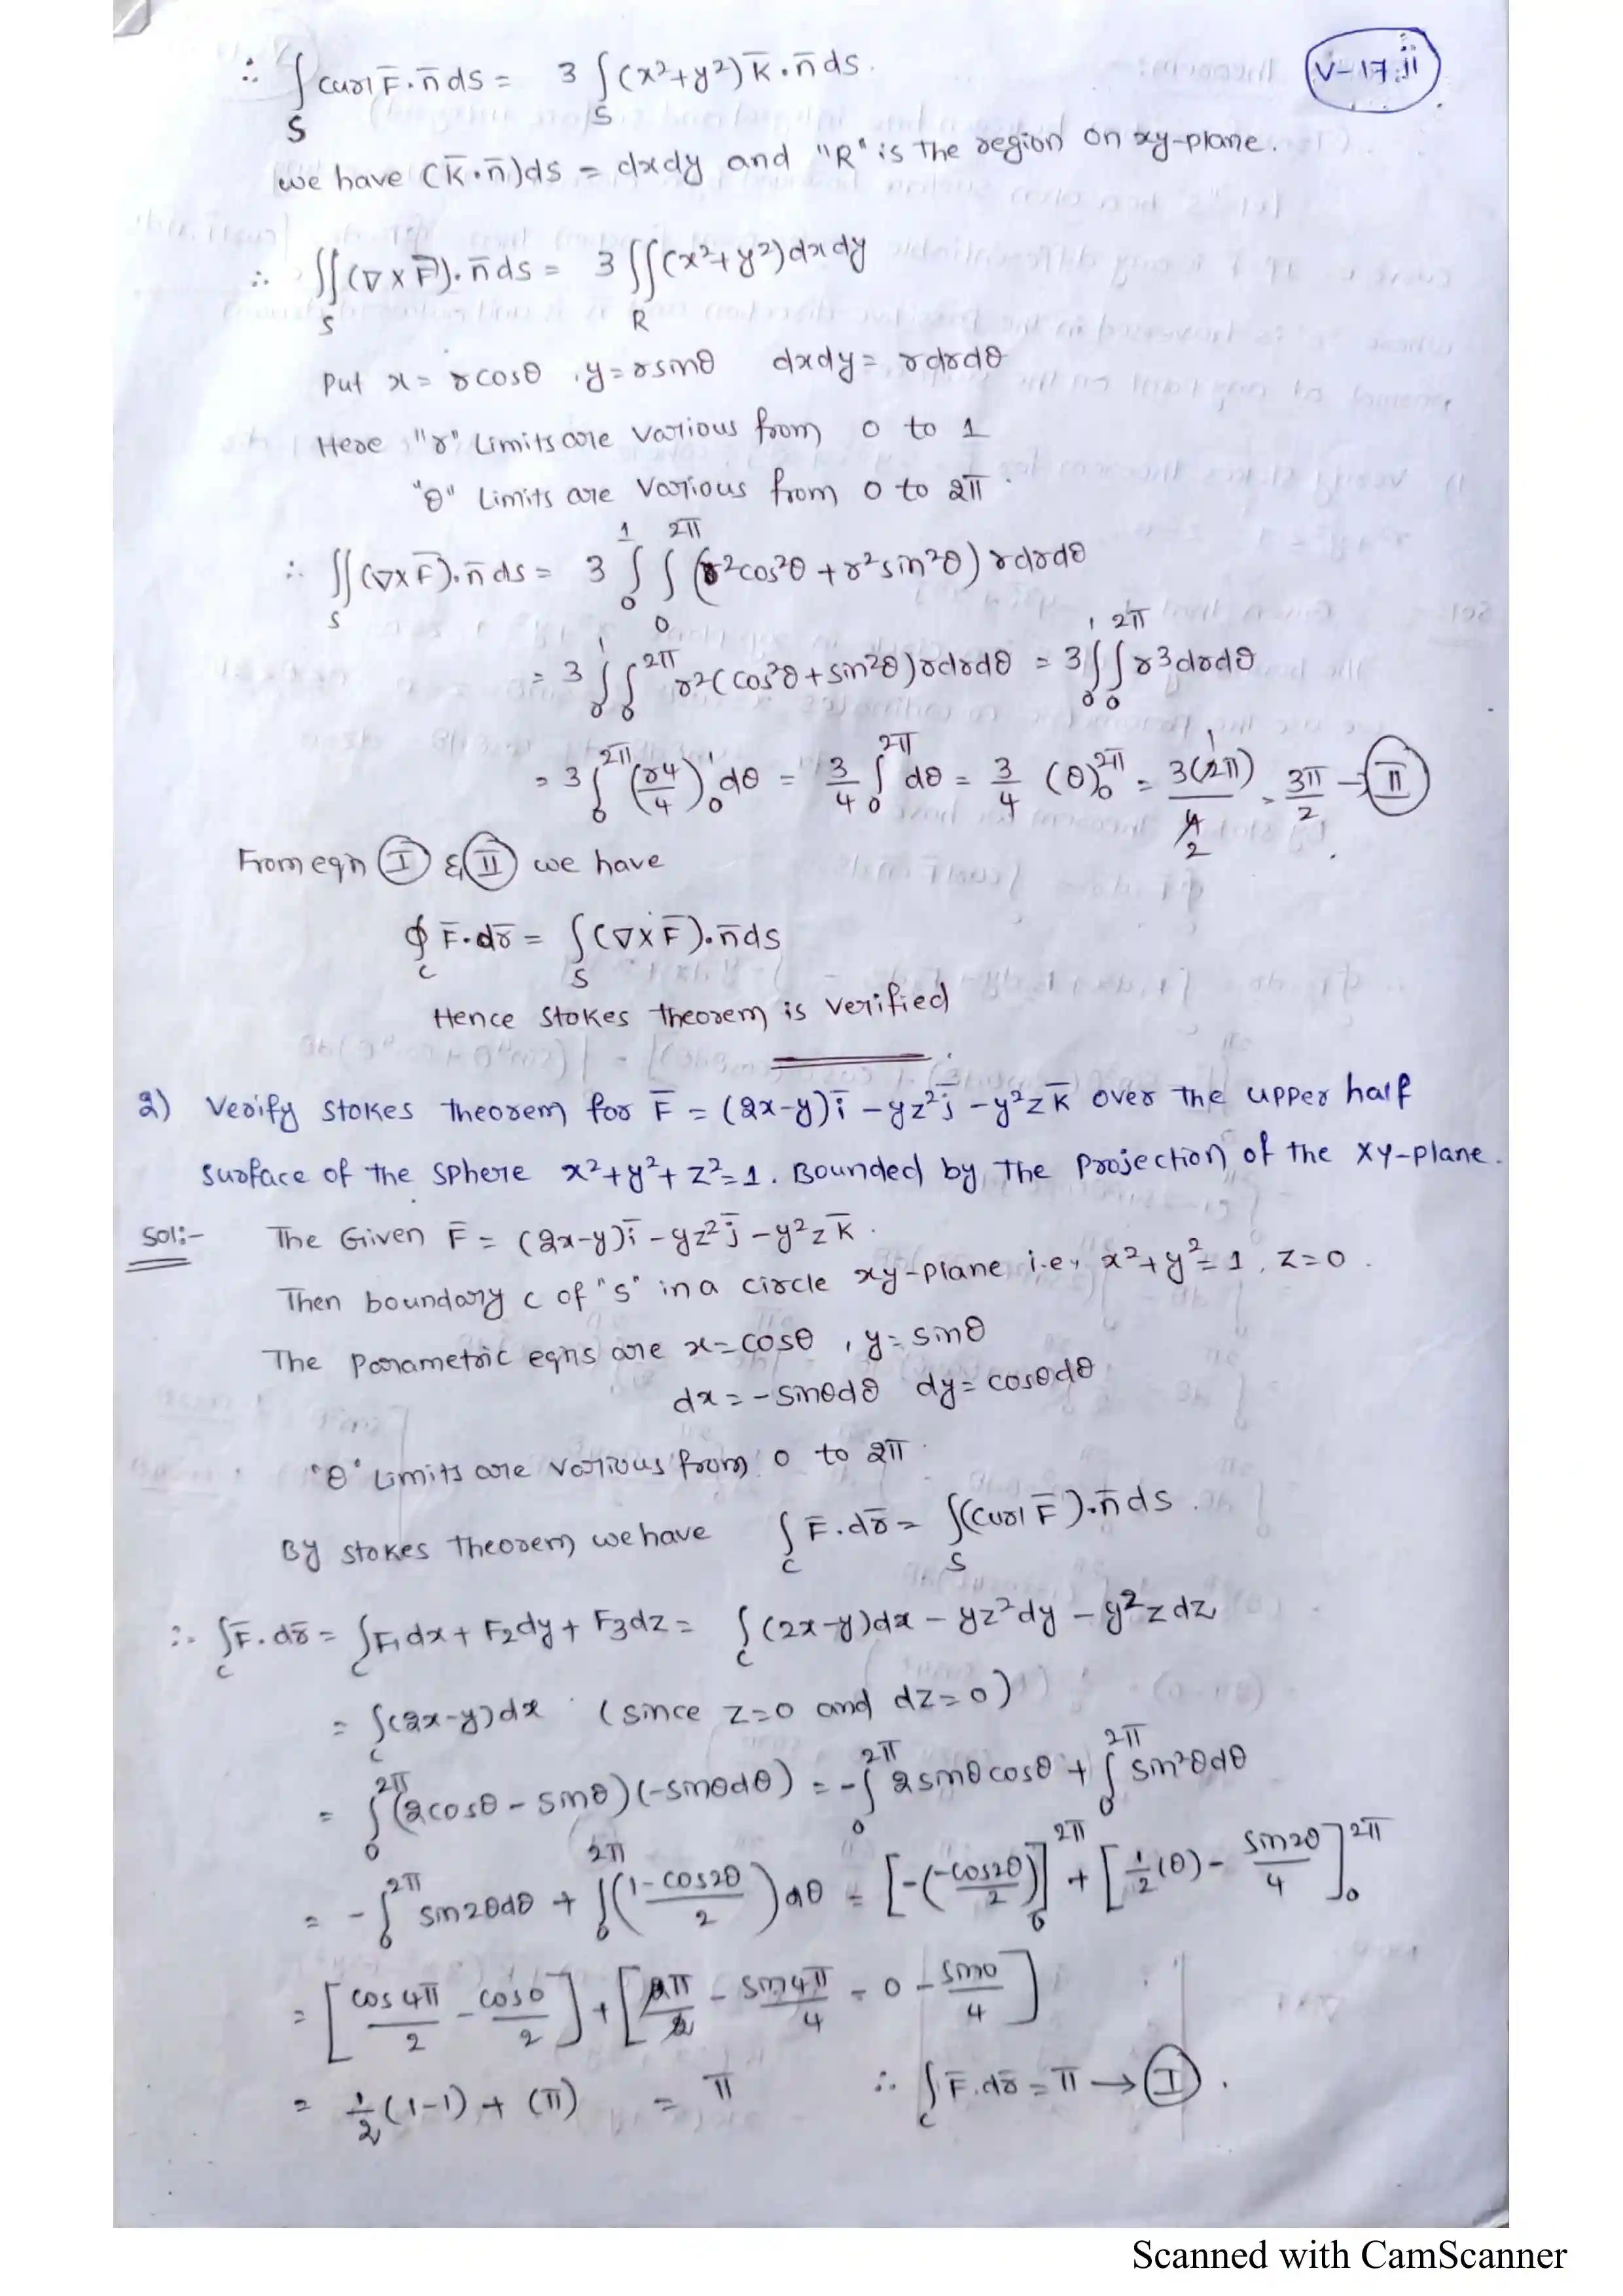 V-17.ii
∴ ∫_S curl F̄.n̄ ds = 3 ∫_S (x²+y²) k̄.n̄ ds.
we have (k̄.n̄)ds = dxdy and "R" is the region on xy-plane.
∴ ∬_S (∇×F̄).n̄ ds = 3 ∬_R (x²+y²) dxdy
Put x = rcosθ , y = rsinθ dxdy = rdrdθ
Here "r" Limits are various from 0 to 1
"θ" Limits are various from 0 to 2π.
∴ ∬_S (∇×F̄).n̄ ds = 3 ∫_0^1 ∫_0^2π (r²cos²θ + r²sin²θ) rdrdθ
= 3 ∫_0^1 ∫_0^2π r²(cos²θ + sin²θ) rdrdθ = 3 ∫_0^1 ∫_0^2π r³drdθ
= 3 ∫_0^2π (r⁴/4)_0^1 dθ = 3/4 ∫_0^2π dθ = 3/4 (θ)_0^2π = 3(2π)/4 = 3π/2 → II
From eqn I & II we have
∮_C F̄.dr̄ = ∫_S (∇×F̄).n̄ds
Hence Stokes theorem is verified
2) Verify Stokes theorem for F̄ = (2x-y)ī - yz²j̄ - y²zk̄ over the upper half
surface of the sphere x²+y²+z²=1. Bounded by The Projection of the xy-plane.
Sol:- The Given F̄ = (2x-y)ī - yz²j̄ - y²zk̄.
Then boundary c of "s" in a circle xy-plane i.e, x²+y²=1, z=0.
The parametric eqns are x=cosθ , y=sinθ
dx = -sinθdθ dy = cosθdθ
"θ" Limits are various from 0 to 2π.
By stokes Theorem we have ∫_C F̄.dr̄ = ∫_S (curl F̄).n̄ ds.
∴ ∫_C F̄.dr̄ = ∫_C F₁dx + F₂dy + F₃dz = ∫_C (2x-y)dx - yz²dy - y²zdz
= ∫_C (2x-y)dx (since z=0 and dz=0)
= ∫_0^2π (2cosθ - sinθ)(-sinθdθ) = -∫_0^2π 2sinθcosθ + ∫_0^2π sin²θdθ
= -∫_0^2π sin2θdθ + ∫_0^2π (1-cos2θ/2)dθ = [-(-cos2θ/2)]_0^2π + [1/2(θ) - sin2θ/4]_0^2π
= [cos4π/2 - cos0/2] + [2π/2 - sin4π/4 - 0 - sin0/4]
= 1/2(1-1) + (π) = π ∴ ∫_C F̄.dr̄ = π → I.
Scanned with CamScanner